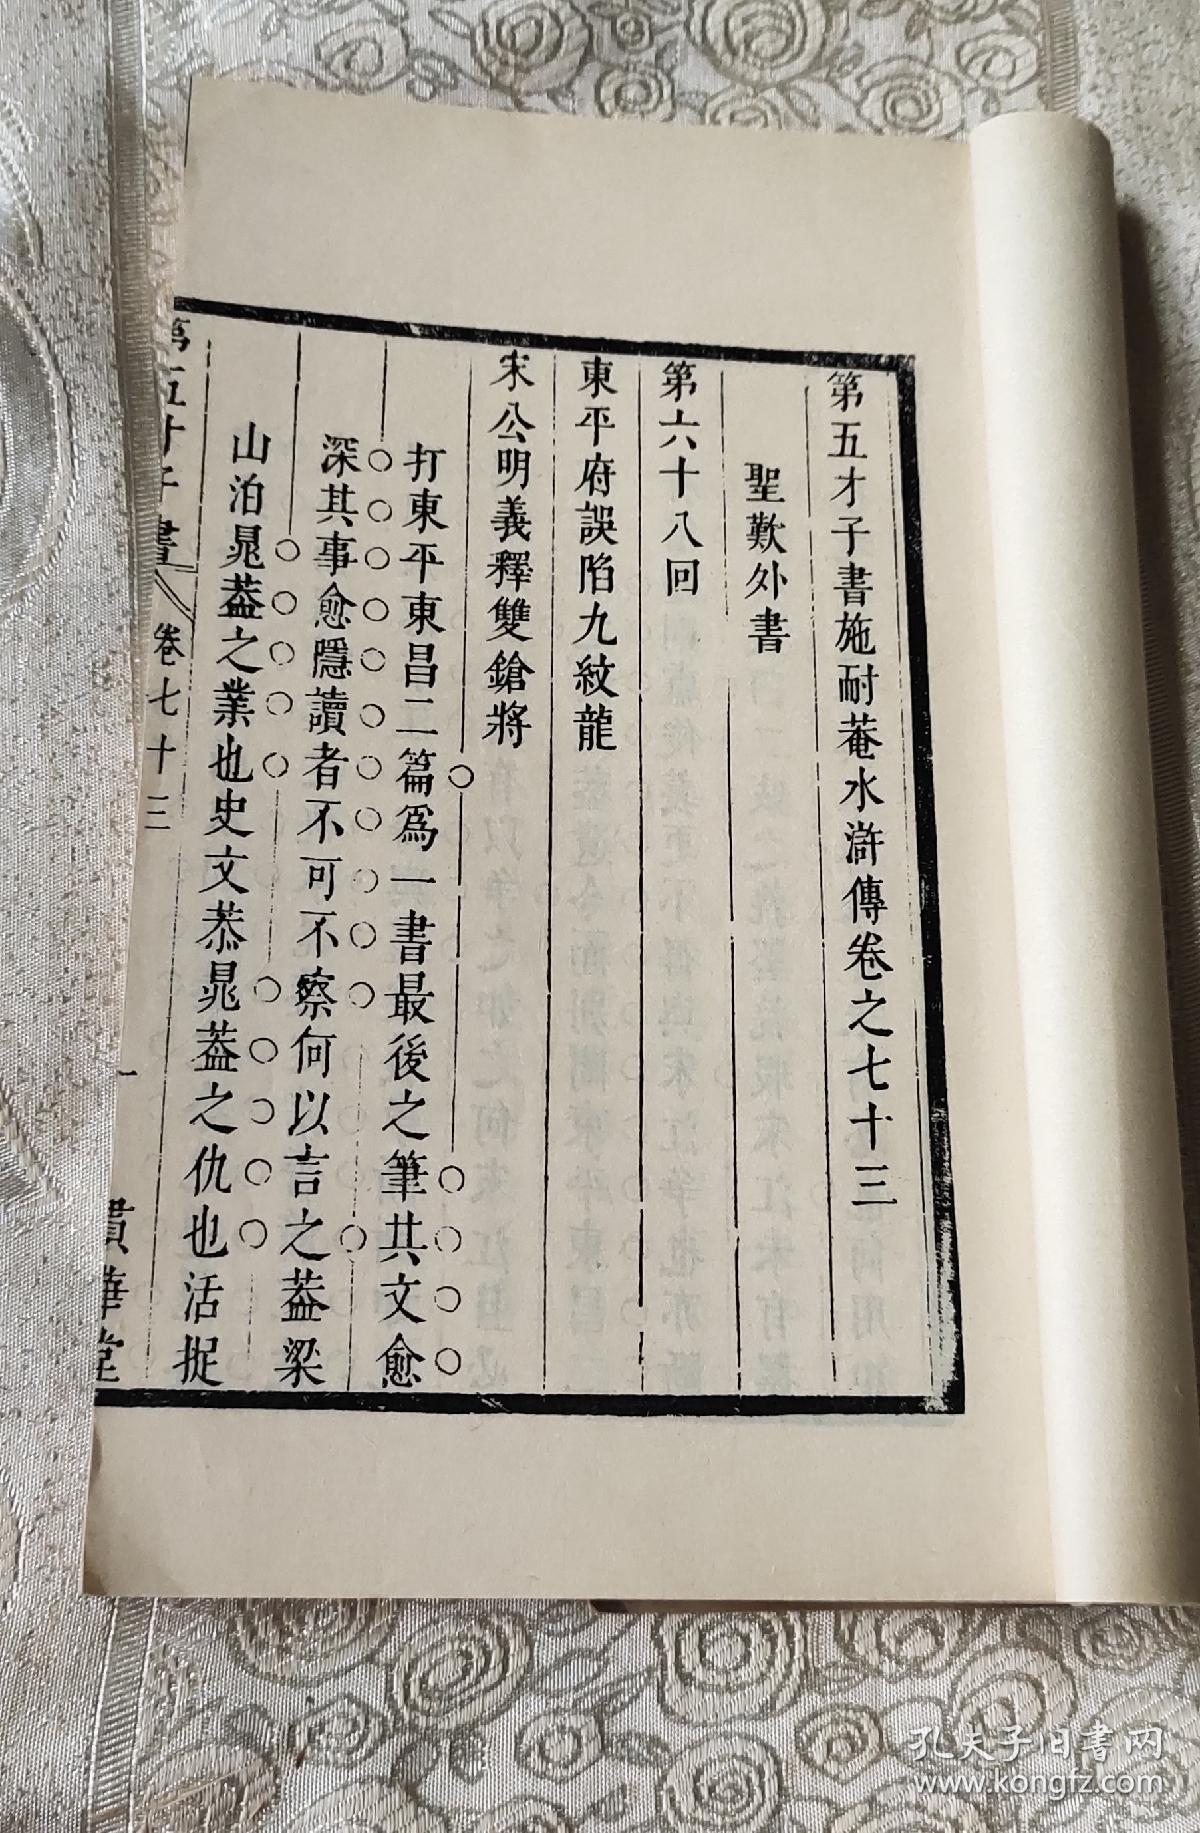 第五才子書施耐菴水滸傳卷之七十三
聖歎外書
第六十八回
東平府誤陷九紋龍
宋公明義釋雙鎗將
打東平東昌二篇爲一書最後之筆其文愈
深其事愈隱讀者不可不察何以言之葢梁
山泊晁葢之業也史文恭晁葢之仇也活捉
第五才子書
卷七十三
一
貫華堂
孔夫子旧书网
www.kongfz.com